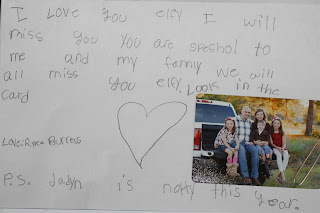 I Love you elfy I will
miss you You are speshol to
me and my famly we will
all miss you elfy. Look in the
card
Love: Burress
P.S. Jadyn is noty this year.